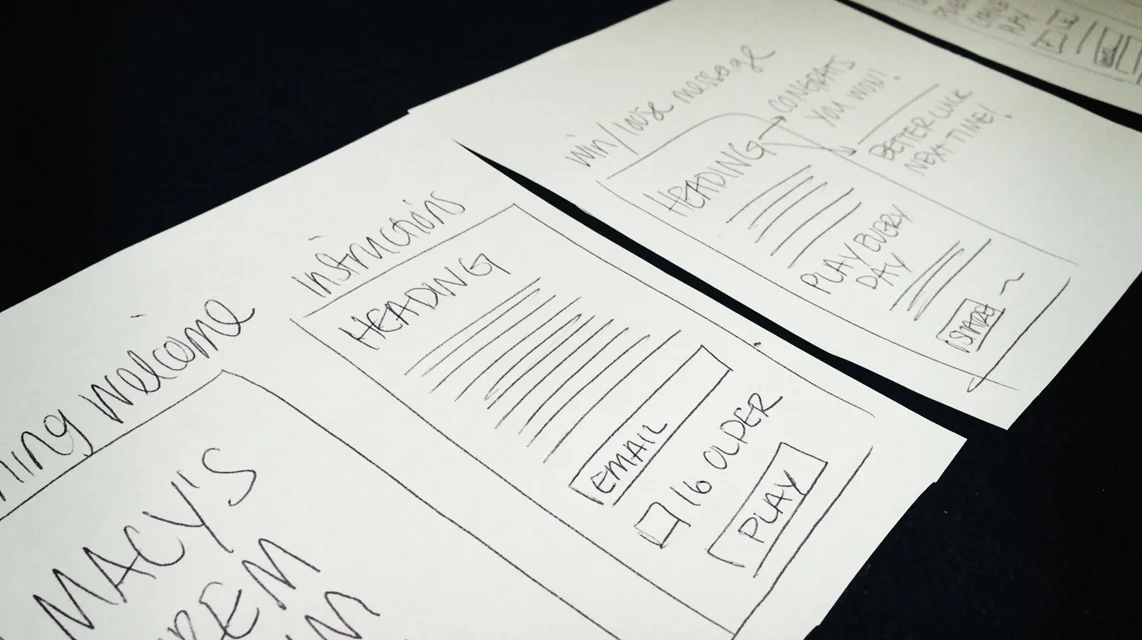 welcome
MACY'S
Instructions
HEADING
EMAIL
16 OLDER
PLAY
win/lose message
HEADING
CONGRATS
YOU WON!
BETTER LUCK
NEXT TIME!
PLAY EVERY
DAY
SHARE